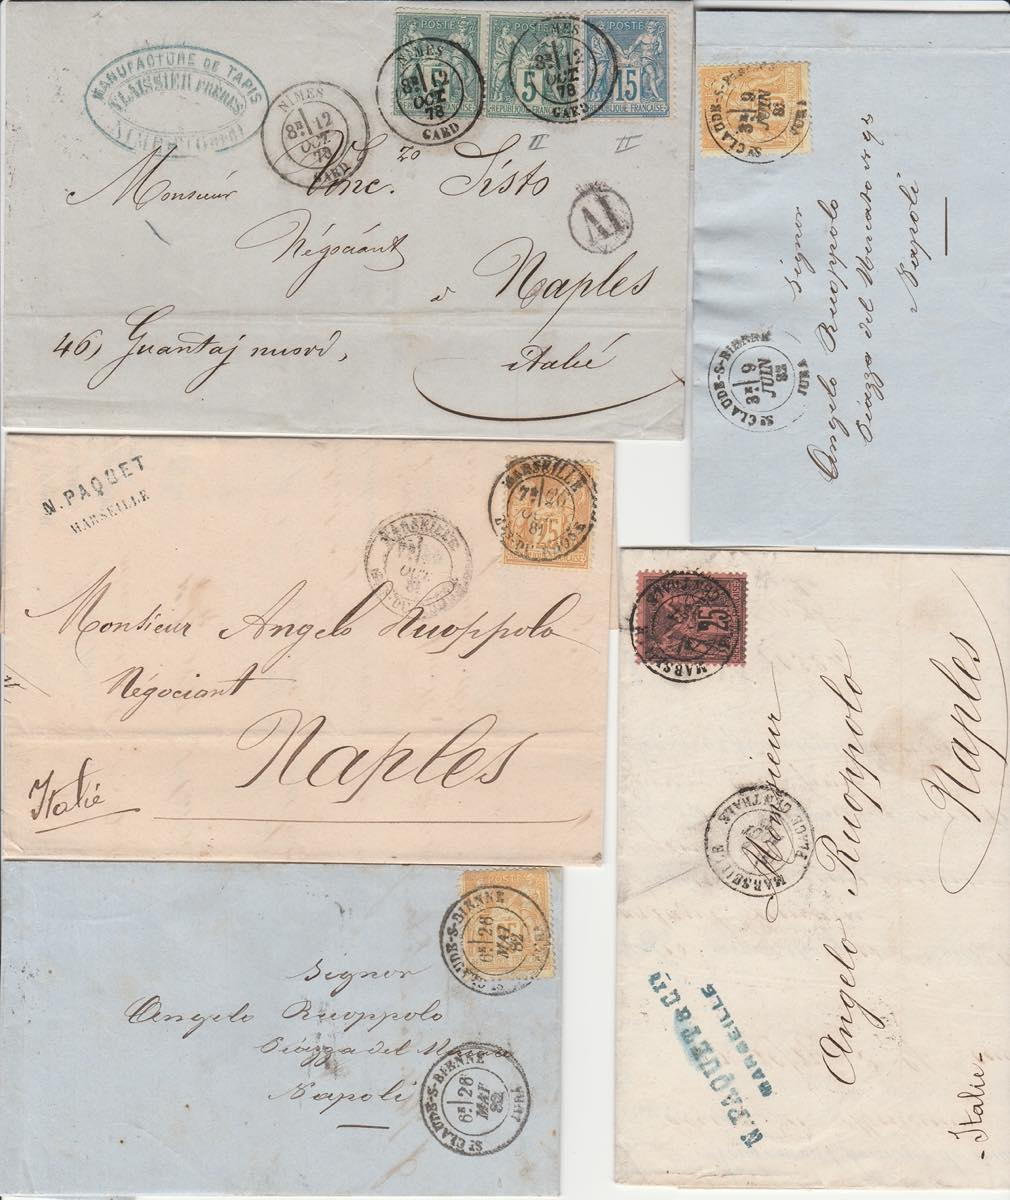 MANUFACTURE DE TAPIS
FLAISSIER FRÈRES
NIMES (GARD)
NIMES
8E 12
OCT
78
GARD
POSTE
5
REPUBLIQUE FRANÇAISE
NIMES
8E 12
OCT
78
GARD
POSTE
5
REPUBLIQUE FRANÇAISE
NIMES
8E 12
OCT
78
GARD
POSTE
15
REPUBLIQUE FRANÇAISE
II II
Monsieur Vinc.zo Sisto
AI
Négociant
à Naples
46, Guantaj nuovi,
Italie
ST CLAUDE-S-BIENNE
3E 9
JUIN
82
JURA
Signor
Angelo Ruoppolo
Piazza del Mercato
Napoli
ST CLAUDE-S-BIENNE
3E 9
JUIN
82
JURA
N. PAQUET
MARSEILLE
MARSEILLE
7E 26
OCT
81
BES-DU-RHONE
25
MARSEILLE
OCT
Monsieur Angelo Ruoppolo
Négociant
Naples
Italie
25
MARSEILLE
MARSEILLE
PLACE CENTRALE
Monsieur
Angelo Ruoppolo
Naples
N. PAQUET & CIE
MARSEILLE
- Italie -
POSTE
ST CLAUDE-S-BIENNE
6E 26
MAI
82
Signor
Angelo Ruoppolo
Piazza del
Napoli
ST CLAUDE-S-BIENNE
6E 26
MAI
82
JURA